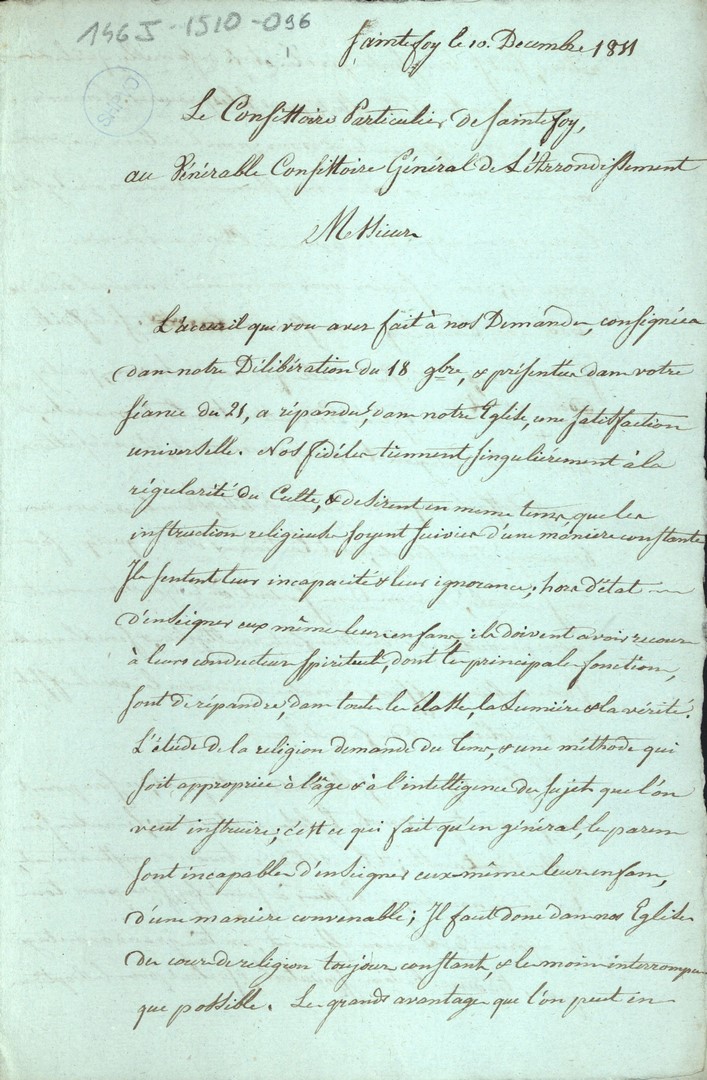 146J-1510-096
Saintefoy le 10. Decembre 1811
Le Consistoire Particulier de Saintefoy,
au Vénérable Consistoire Général de L'Arrondissement
Messieurs
L'accueil que vous avez fait à nos Demandes, consignées
dans notre Délibération du 18 9bre, & présentées dans votre
séance du 21, a répandu, dans notre Eglise, une satisfaction
universelle. Nos fidéles tiennent singuliérement à la
régularité du Culte, & desirent en meme tems, que les
instructions religieuses soyent suivies d'une maniére constante
Ils sentent leur incapacité & leur ignorance; hors d'état
d'enseigner eux mêmes leurs enfans, ils doivent avoir recours
à leurs conducteurs Spirituels, dont les principales fonctions,
sont de répandre, dans toutes les classes, la Lumiére & la vérité.
L'étude de la religion demande du Tems, & une méthode qui
soit appropriée à l'âge & à l'intelligence des sujets que l'on
veut instruire; c'est ce qui fait qu'en général, les parens
sont incapables d'enseigner eux-mêmes leurs enfans,
d'une maniére convenable; Il faut donc dans nos Eglises
des cours de religion toujours constants, & les moins interrompus
que possible. Le grands avantages que l'on peut en